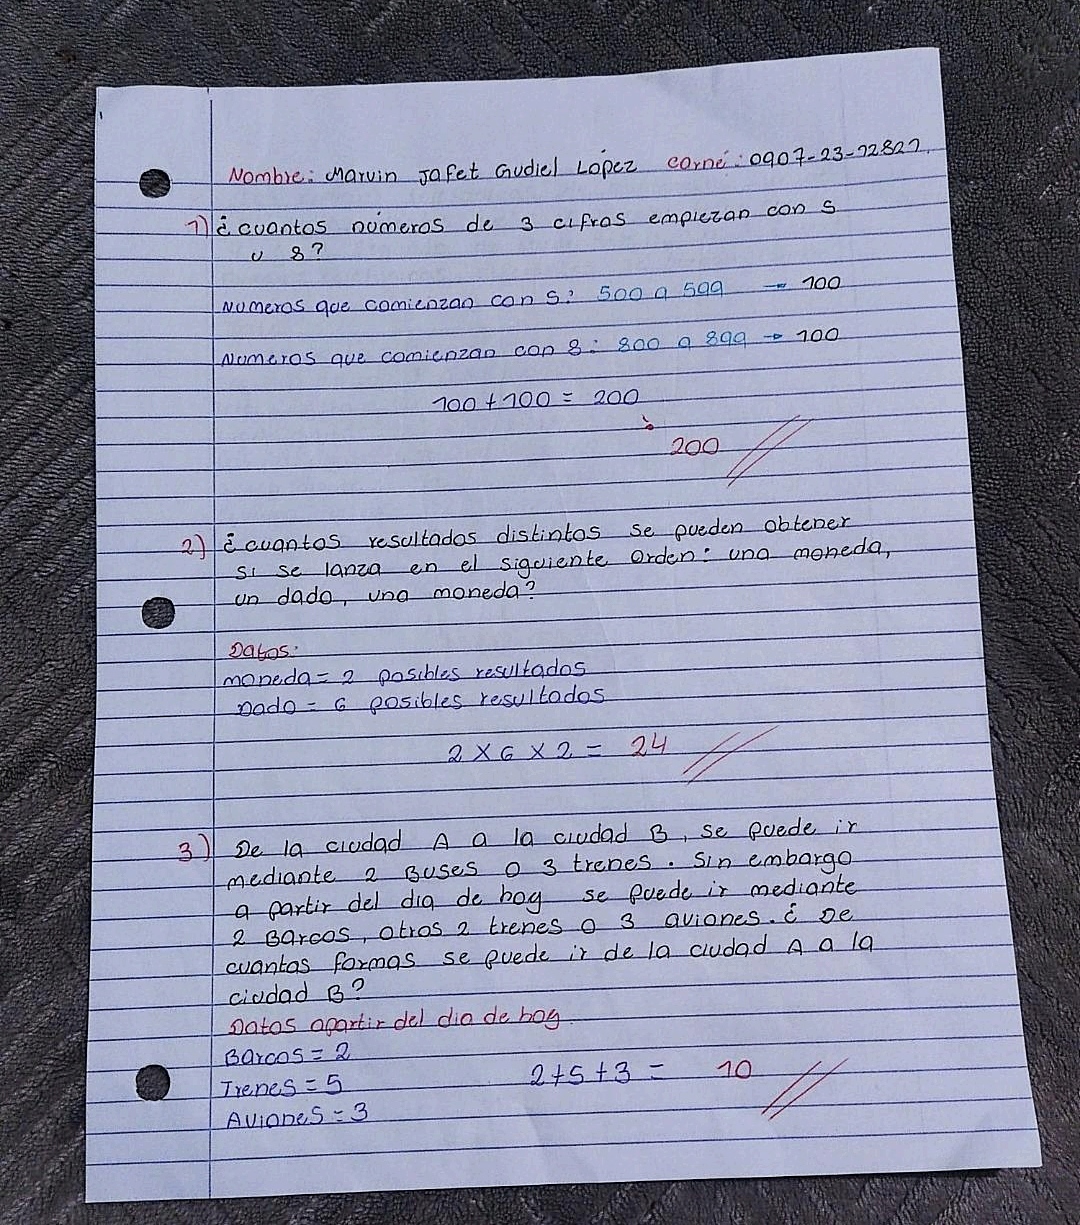 Nombre: Marvin Jafet Gudiel López carné: 0907-23-12822.
1) ¿cuantos números de 3 cifras empiezan con 5
u 8?
Numeros que comienzan con 5: 500 a 599 → 100
Numeros que comienzan con 8: 800 a 899 → 100
100 + 100 = 200
200
2) ¿cuantos resultados distintos se pueden obtener
si se lanza en el siguiente orden: una moneda,
un dado, una moneda?
Datos:
moneda = 2 posibles resultados
Dado = 6 posibles resultados
2 x 6 x 2 = 24
3) De la ciudad A a la ciudad B, se puede ir
mediante 2 Buses o 3 trenes. Sin embargo
a partir del dia de hoy se puede ir mediante
2 Barcos, otros 2 trenes o 3 aviones. ¿De
cuantas formas se puede ir de la ciudad A a la
ciudad B?
Datos apartir del dia de hoy.
Barcos = 2
Trenes = 5 2+5+3 = 10
Aviones = 3